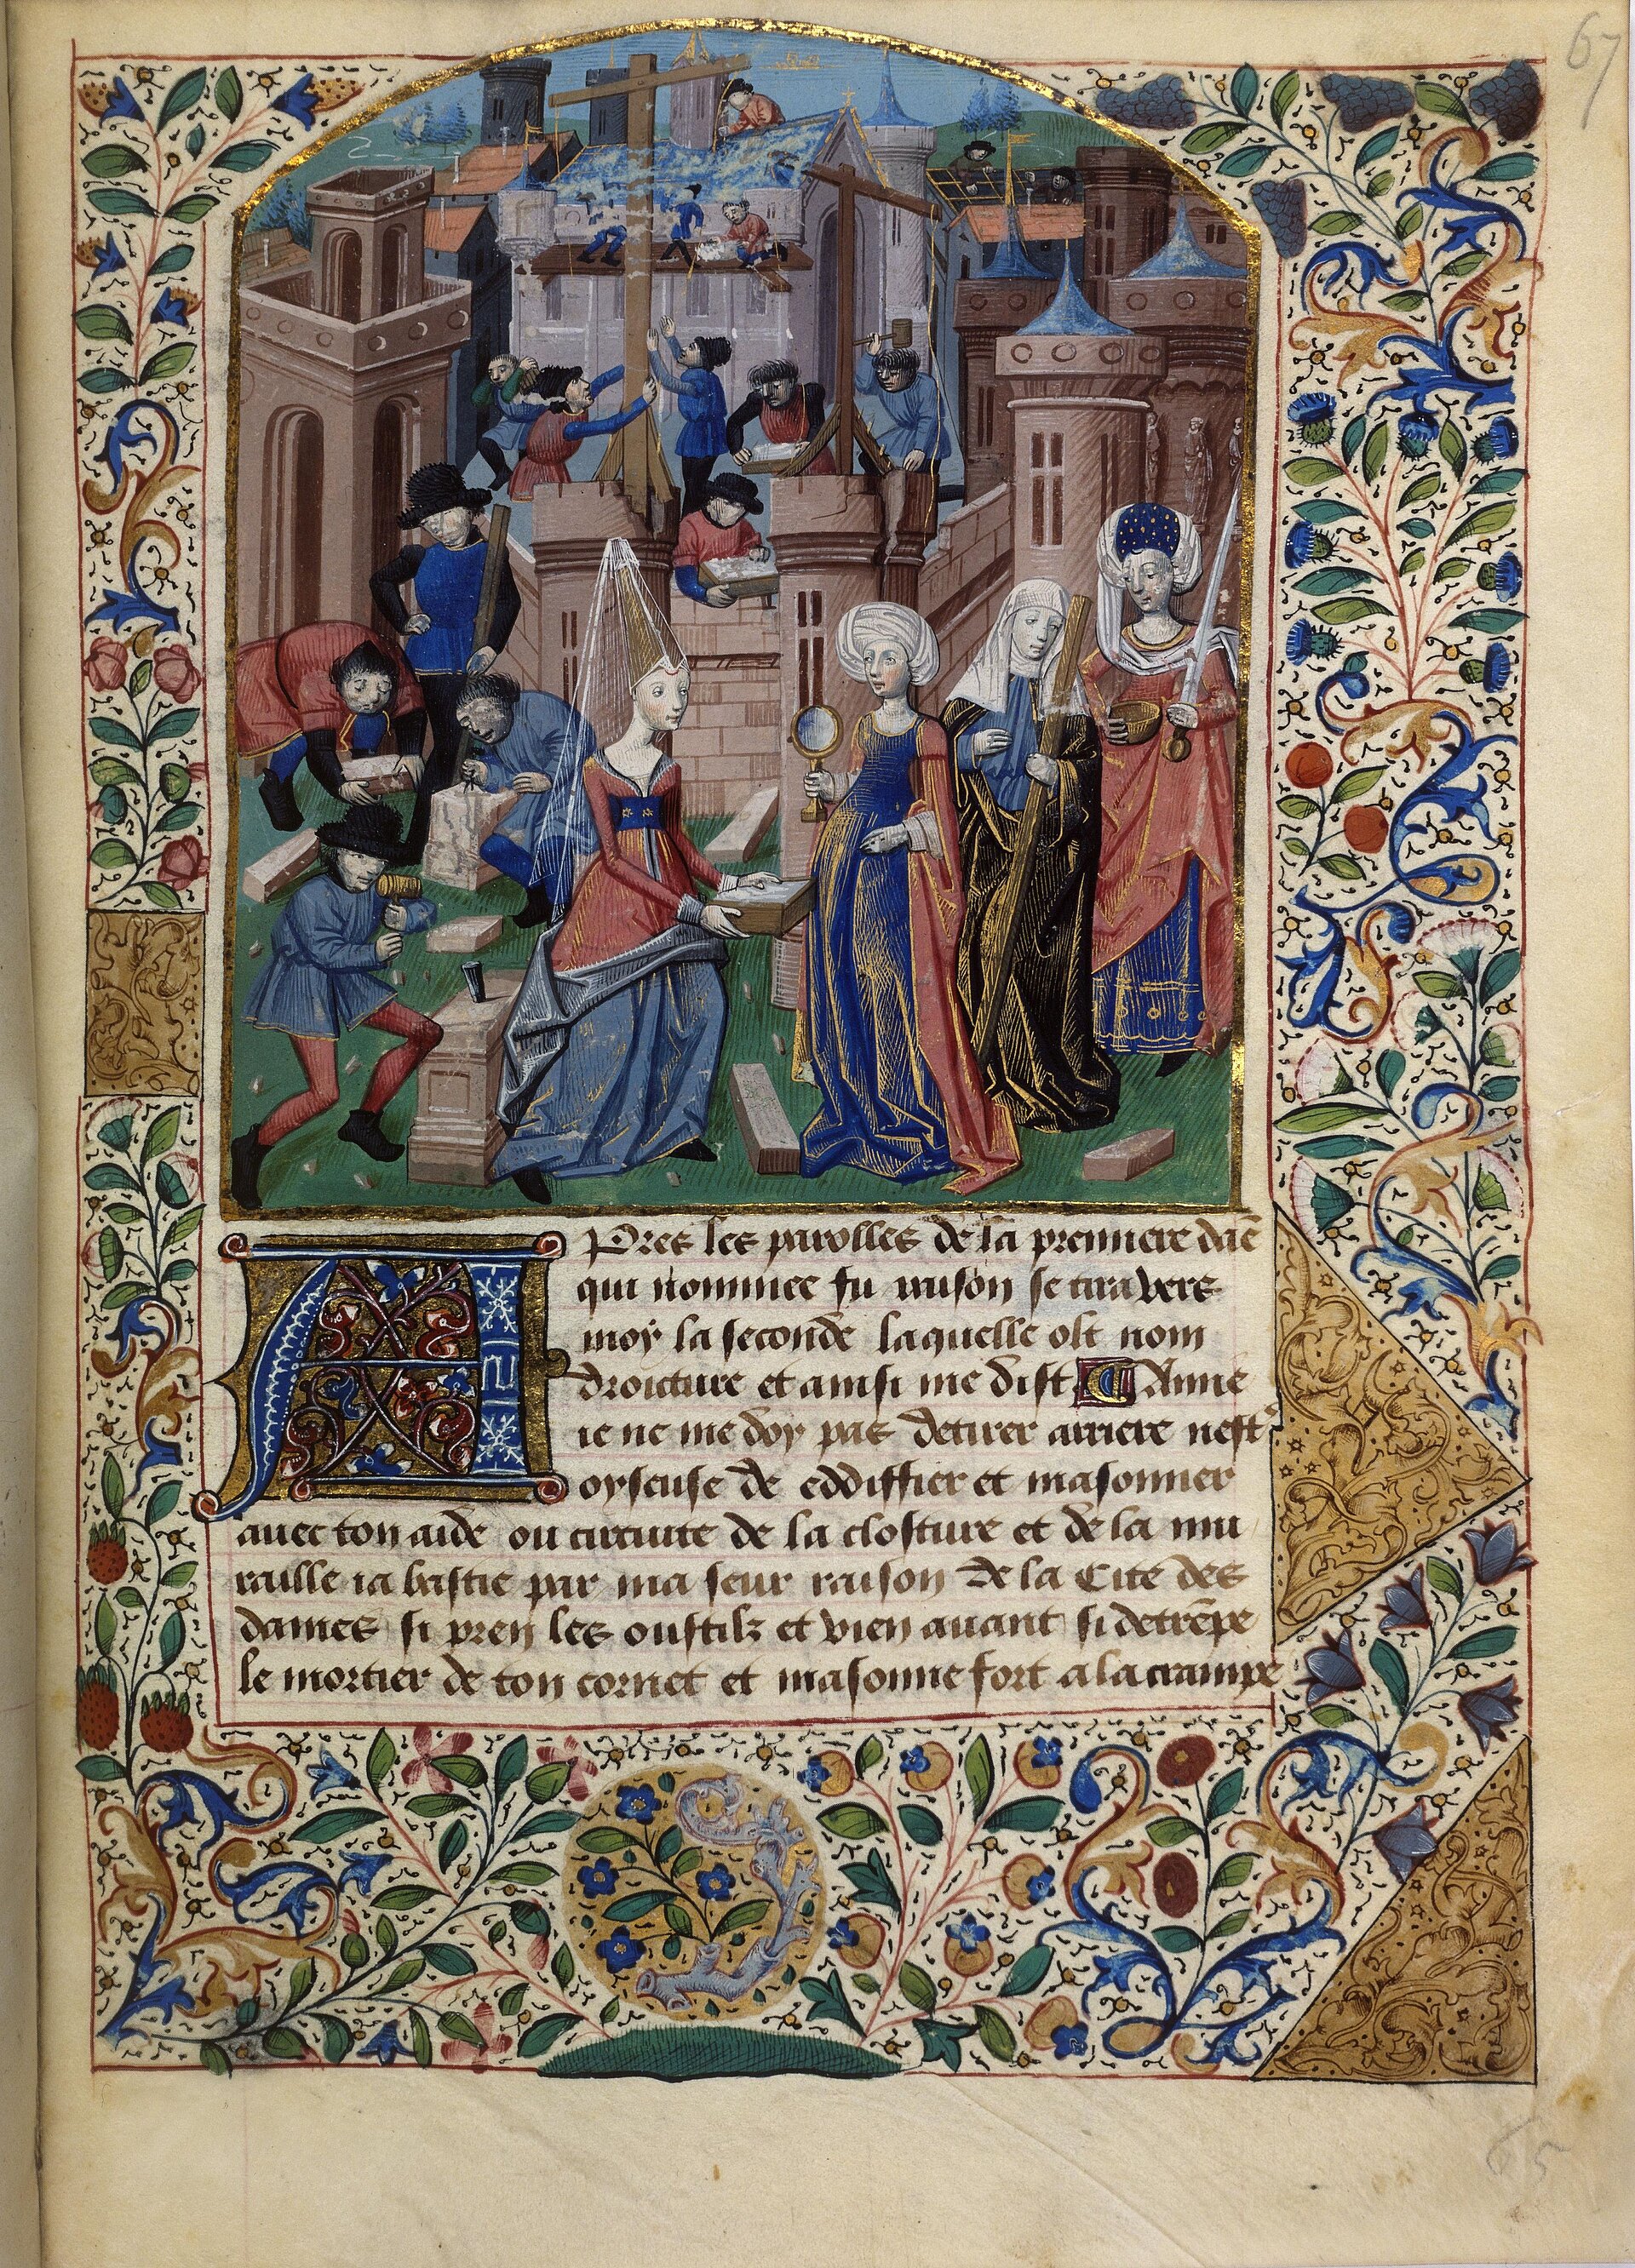 67
APres les parolles de la premiere daē
qui nommee fu raison se tira vers
moy la seconde laquelle olt nom
droicture et ainsi me dist Anne
ie ne me doy pas detirer arriere nest
oyseuse de eddiffier et masonner
auec ton aide ou circuite de la closture et de la mu
raille ia bastie par ma seur raison de la Cite des
dames si pren les oustilz et vien auant si detrēpe
le mortier de ton cornet et masonne fort a la trampe
65